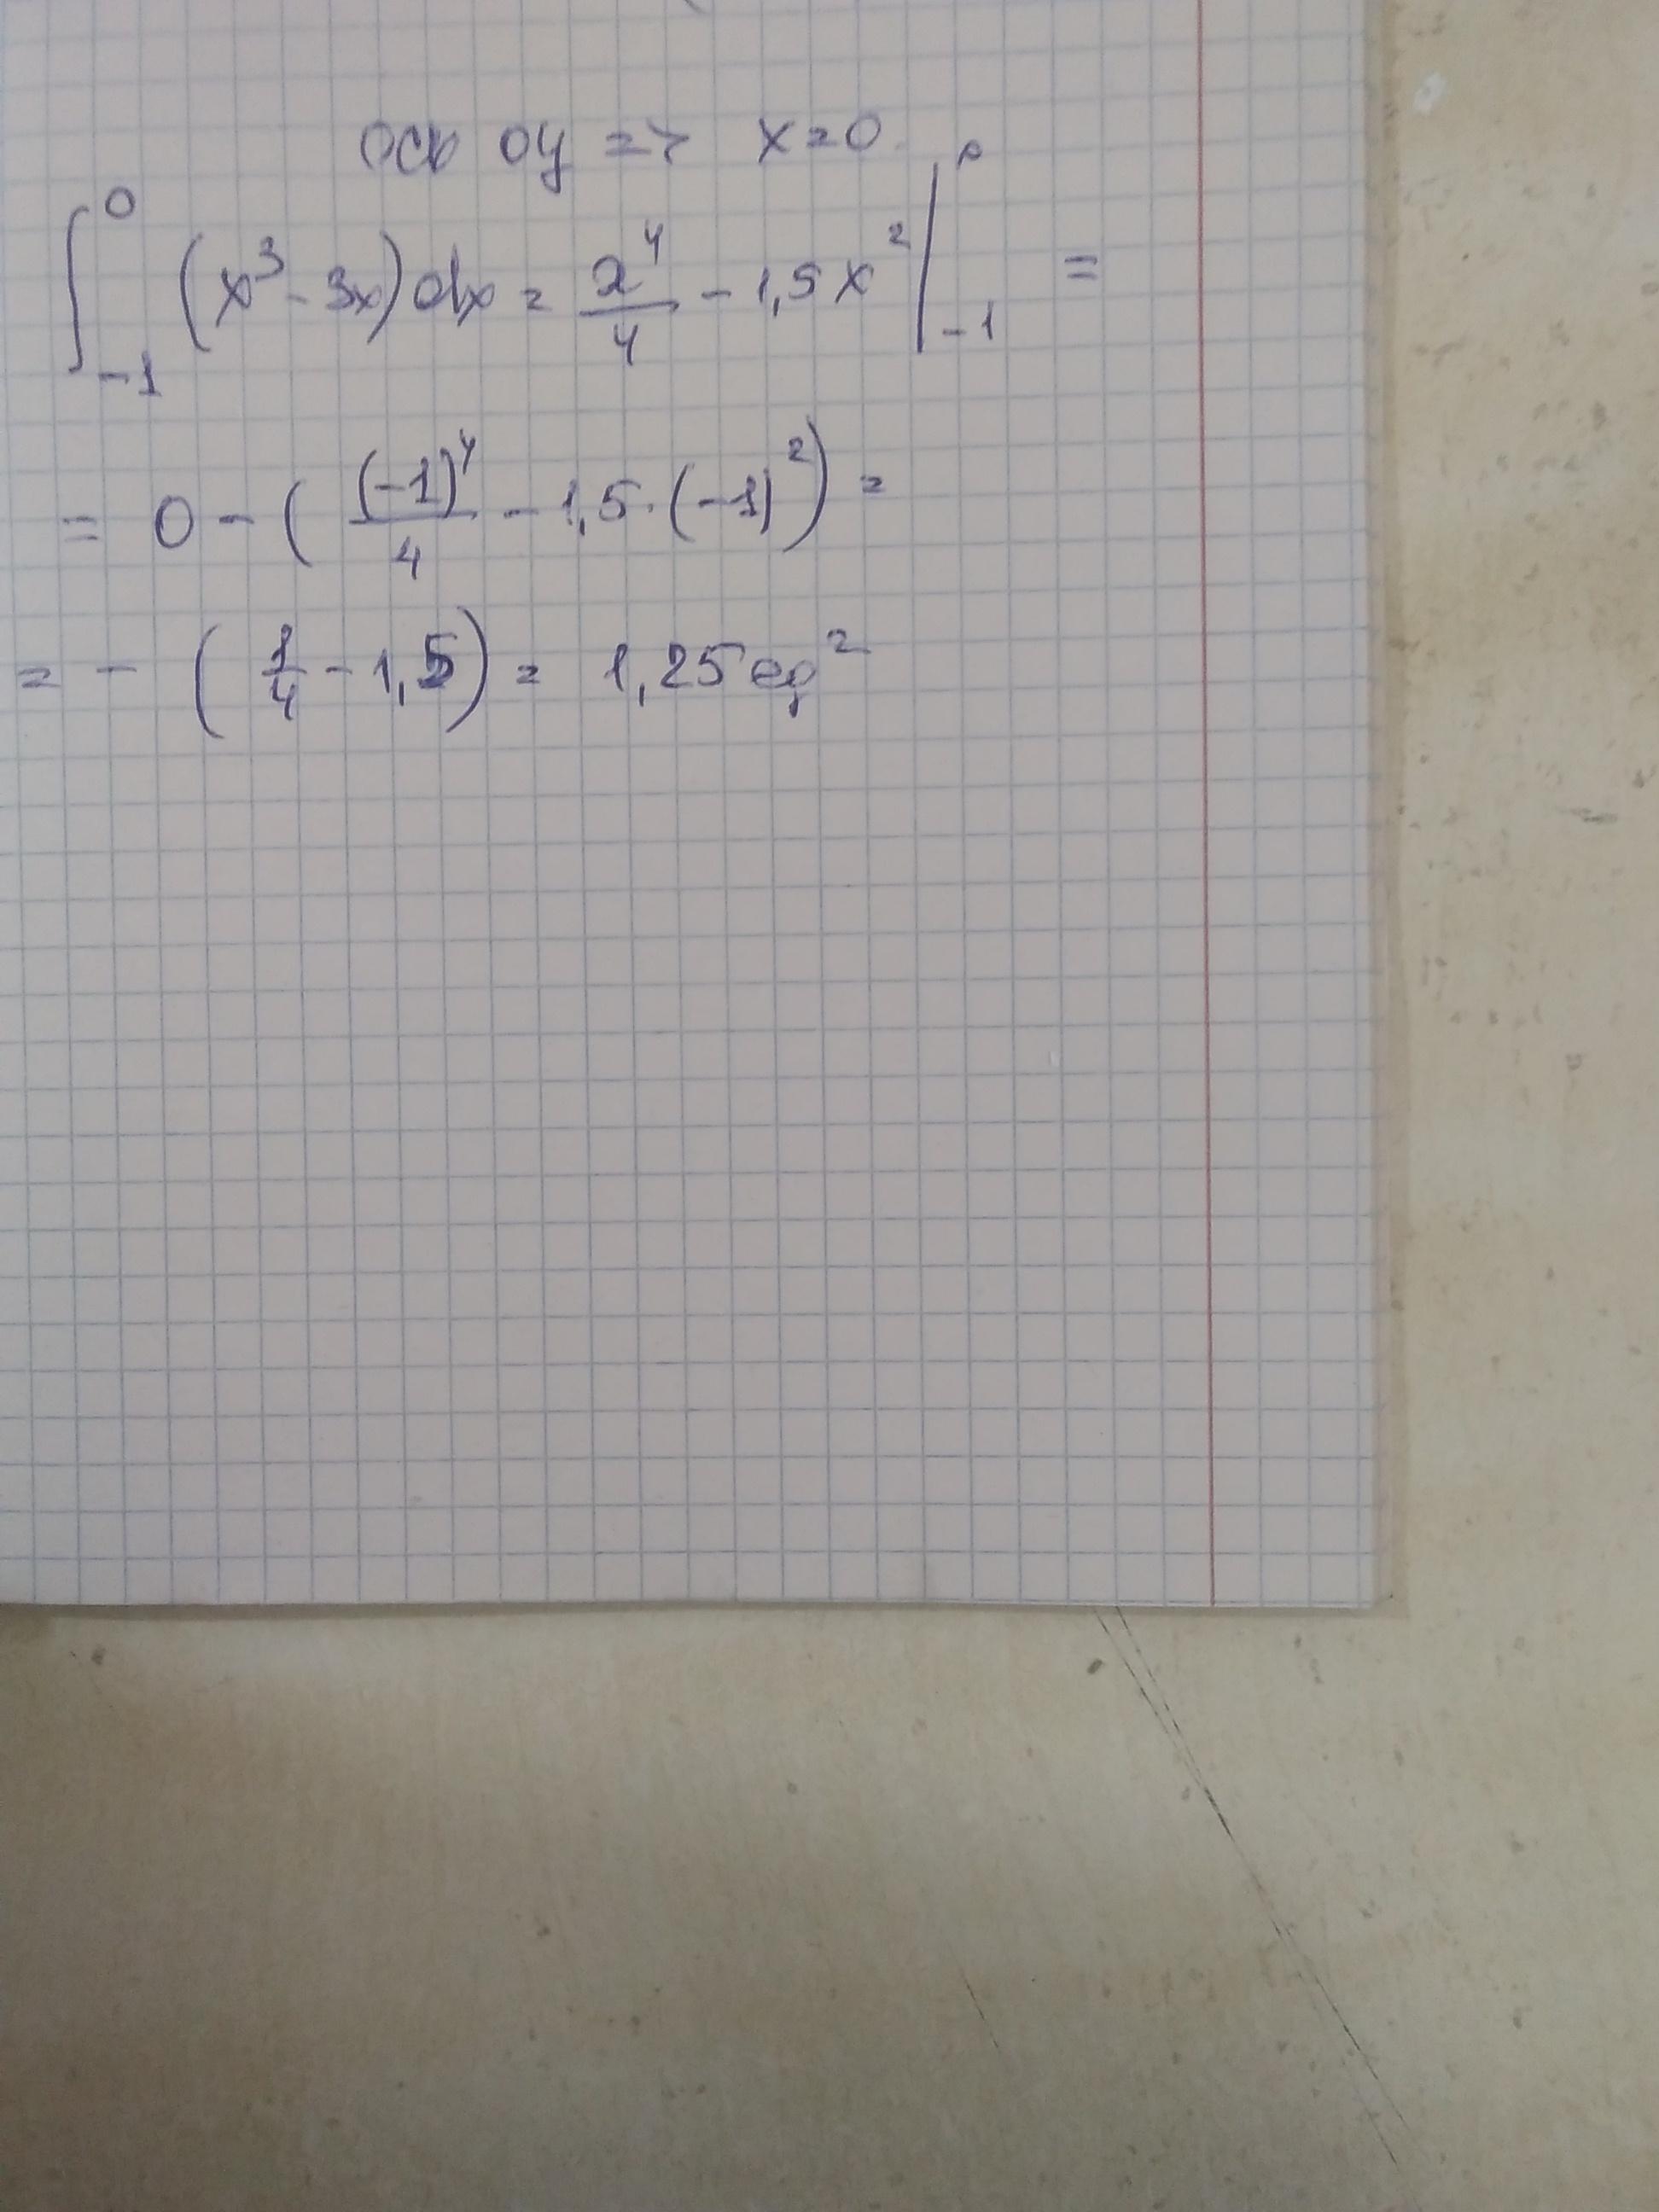 ось оу => x=0
∫₋₁⁰ (x³ - 3x)dx = x⁴/4 - 1,5x² |₋₁⁰ =
= 0 - ( (-1)⁴/4 - 1,5·(-1)² ) =
= - ( 1/4 - 1,5 ) = 1,25 ед²